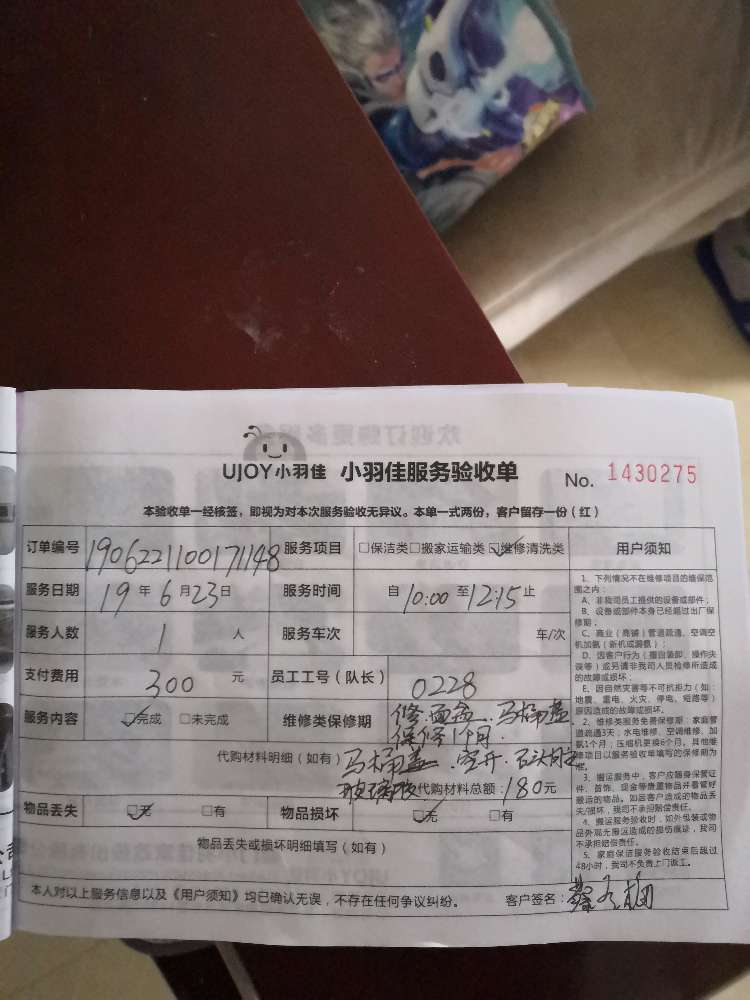 UJOY小羽佳 小羽佳服务验收单 No. 1430275
本验收单一经核签，即视为对本次服务验收无异议。本单一式两份，客户留存一份（红）
订单编号 1906221100171148 服务项目 □保洁类□搬家运输类☑维修清洗类 用户须知
服务日期 19年6月23日 服务时间 自10:00至12:15止
服务人数 1人 服务车次 车/次
支付费用 300元 员工工号（队长） 0228
服务内容 ☑完成 □未完成 维修类保修期 修面盆、马桶盖
保修1个月
代购材料明细（如有） 马桶盖、空开、
玻璃胶 代购材料总额：180元
物品丢失 ☑无 □有 物品损坏 ☑无 □有
物品丢失或损坏明细填写（如有）
本人对以上服务信息以及《用户须知》均已确认无误，不存在任何争议纠纷。 客户签名：
1、下列情况不在维修项目的维保范
围之内：
A、非我司员工提供的设备或部件；
B、设备或部件本身已经超过出厂保
修期；
C、商业（商铺）管道疏通、空调空
机加氨（新机或漏氨）；
D、因客户行为（擅自装卸、操作失
误等）或另请非我司人员检修所造成
的故障或损坏；
E、因自然灾害等不可抗拒力（如：
地震、雷电、火灾、停电、短路等）
原因造成的故障或损坏。
2、维修类服务免费保修期：家庭管
道疏通3天；水电维修、空调维修、加
氨1个月；压缩机更换6个月，其他维
修项目以服务验收单填写的保修期为
准。
3、搬运服务中，客户应随身保管证
件、首饰、现金等贵重物品并看管好
搬运的物品。如因客户造成的物品丢
失/损坏，我司不承担赔偿责任。
4、搬运服务验收时，如外包装或物
品外观无搬运造成的损伤痕迹，我司
不承担赔偿责任。
5、家庭保洁服务验收结束后超过
48小时，我司不负责上门返工。